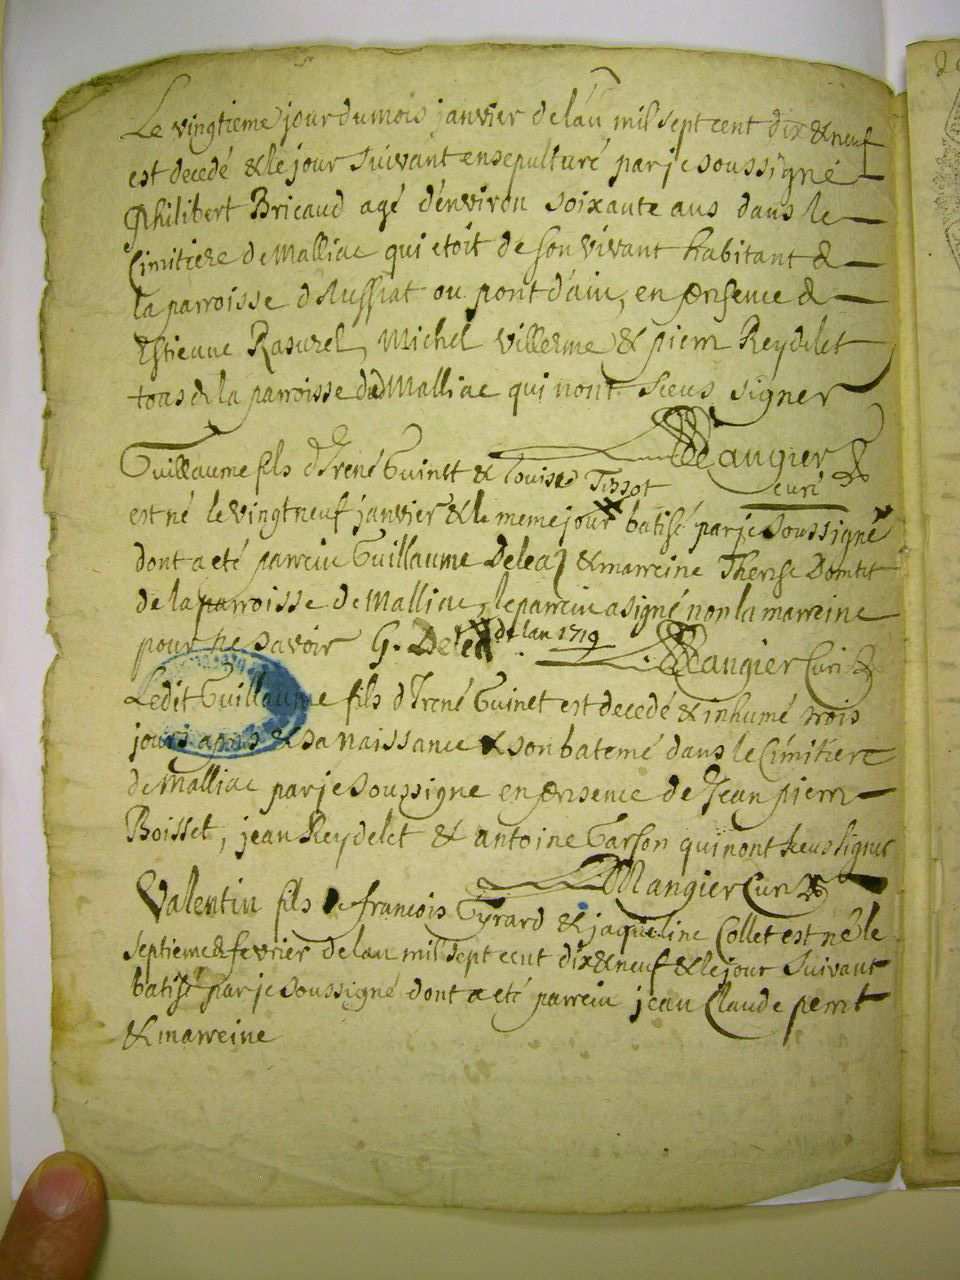 Le vingtieme jour du mois janvier de lan mil sept cent dix & neuf
est decedé & le jour suivant ensepulturé par je soussigné
Philibert Bricaud agé d'environ soixante ans dans le
Cimitiere de Malliac qui etoit de son vivant habitant de
la parroisse d'Aussiat ou pont d'ain, en presence de
Estienne Rasurel, Michel Villerme & pierre Reydelet
tous de la parroisse de Malliac qui n'ont sceus signer
Mangier
curé
Guillaume fils d'Irené Guinet & Louise Tissot
est né le vingt neuf janvier & le meme jour batisé par je soussigné
dont a eté parrein Guillaume Deleaz & marreine Therese
de la parroisse de Malliac, le parrein a signé non la marreine
pour ne savoir G. Delea de lan 1719 Mangier Curé
Ledit Guillaume fils d'Irené Guinet est decedé & inhumé trois
jours apres sa naissance & son batemé dans le Cimitiere
de Malliac par je soussigne en presence de Jean pierre
Boisset, jean Reydelet & antoine Garson qui n'ont sceus signer
Mangier Curé
Valentin fils de francois Gyrard & jaqueline Collet est né le
septieme fevrier de lan mil sept cent dix & neuf & le jour suivant
batisé par je soussigné dont a eté parrein jean Claude perret
& marreine